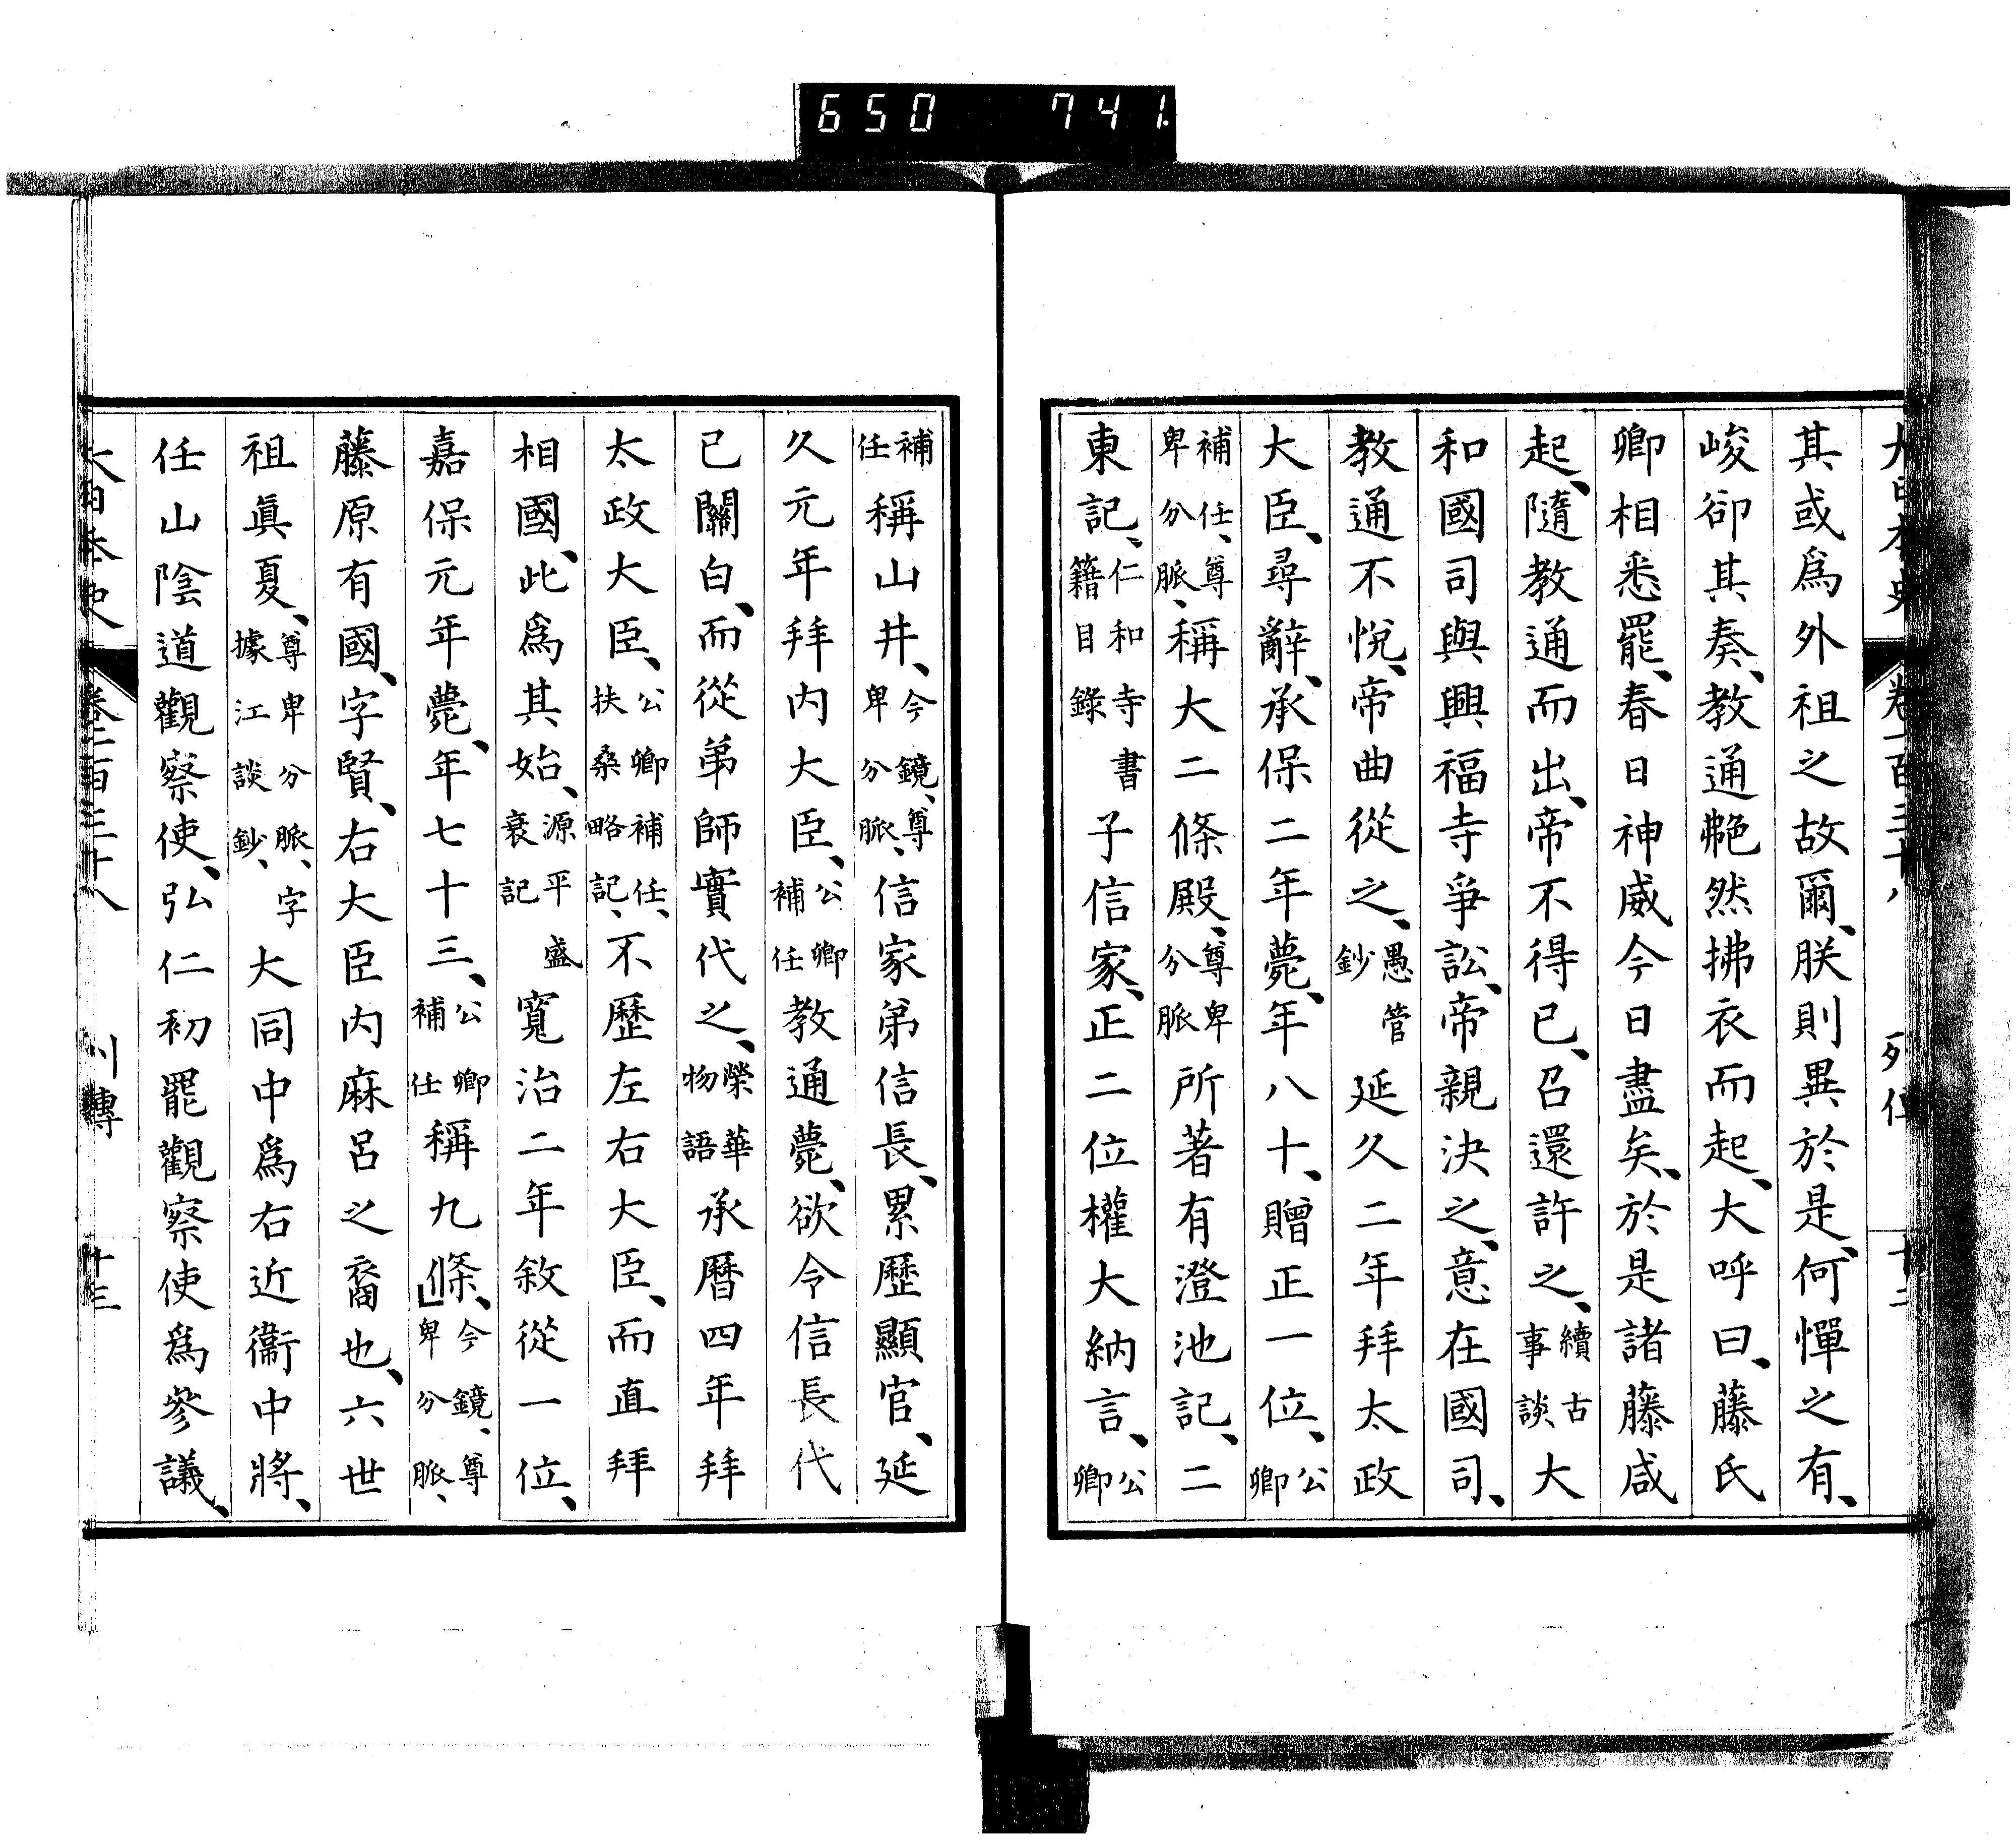 650 741.
大日本史 卷一百三十八 列傳 十二
其或爲外祖之故爾、朕則異於是、何憚之有、
峻卻其奏、教通艴然拂衣而起、大呼曰、藤氏
卿相悉罷、春日神威今日盡矣、於是諸藤咸
起、隨教通而出、帝不得已、召還許之、續古事談大
和國司與興福寺爭訟、帝親決之、意在國司、
教通不悅、帝曲從之、愚管鈔延久二年拜太政
大臣、尋辭、承保二年薨、年八十、贈正一位、公卿
補任、尊卑分脈、稱大二條殿、尊卑分脈所著有澄池記、二
東記、仁和寺書籍目錄子信家、正二位權大納言、公卿
補任稱山井、今鏡、尊卑分脈、信家弟信長、累歷顯官、延
久元年拜內大臣、公卿補任教通薨、欲令信長代
已關白、而從弟師實代之、榮華物語承曆四年拜
太政大臣、公卿補任、扶桑略記、不歷左右大臣、而直拜
相國、此爲其始、源平盛衰記寬治二年敘從一位、
嘉保元年薨、年七十三、公卿補任稱九條、今鏡、尊卑分脈、
藤原有國、字賢、右大臣內麻呂之裔也、六世
祖眞夏、尊卑分脈、字據江談鈔、大同中爲右近衞中將、
任山陰道觀察使、弘仁初罷觀察使爲參議、
大日本史 卷一百三十八 列傳 十三